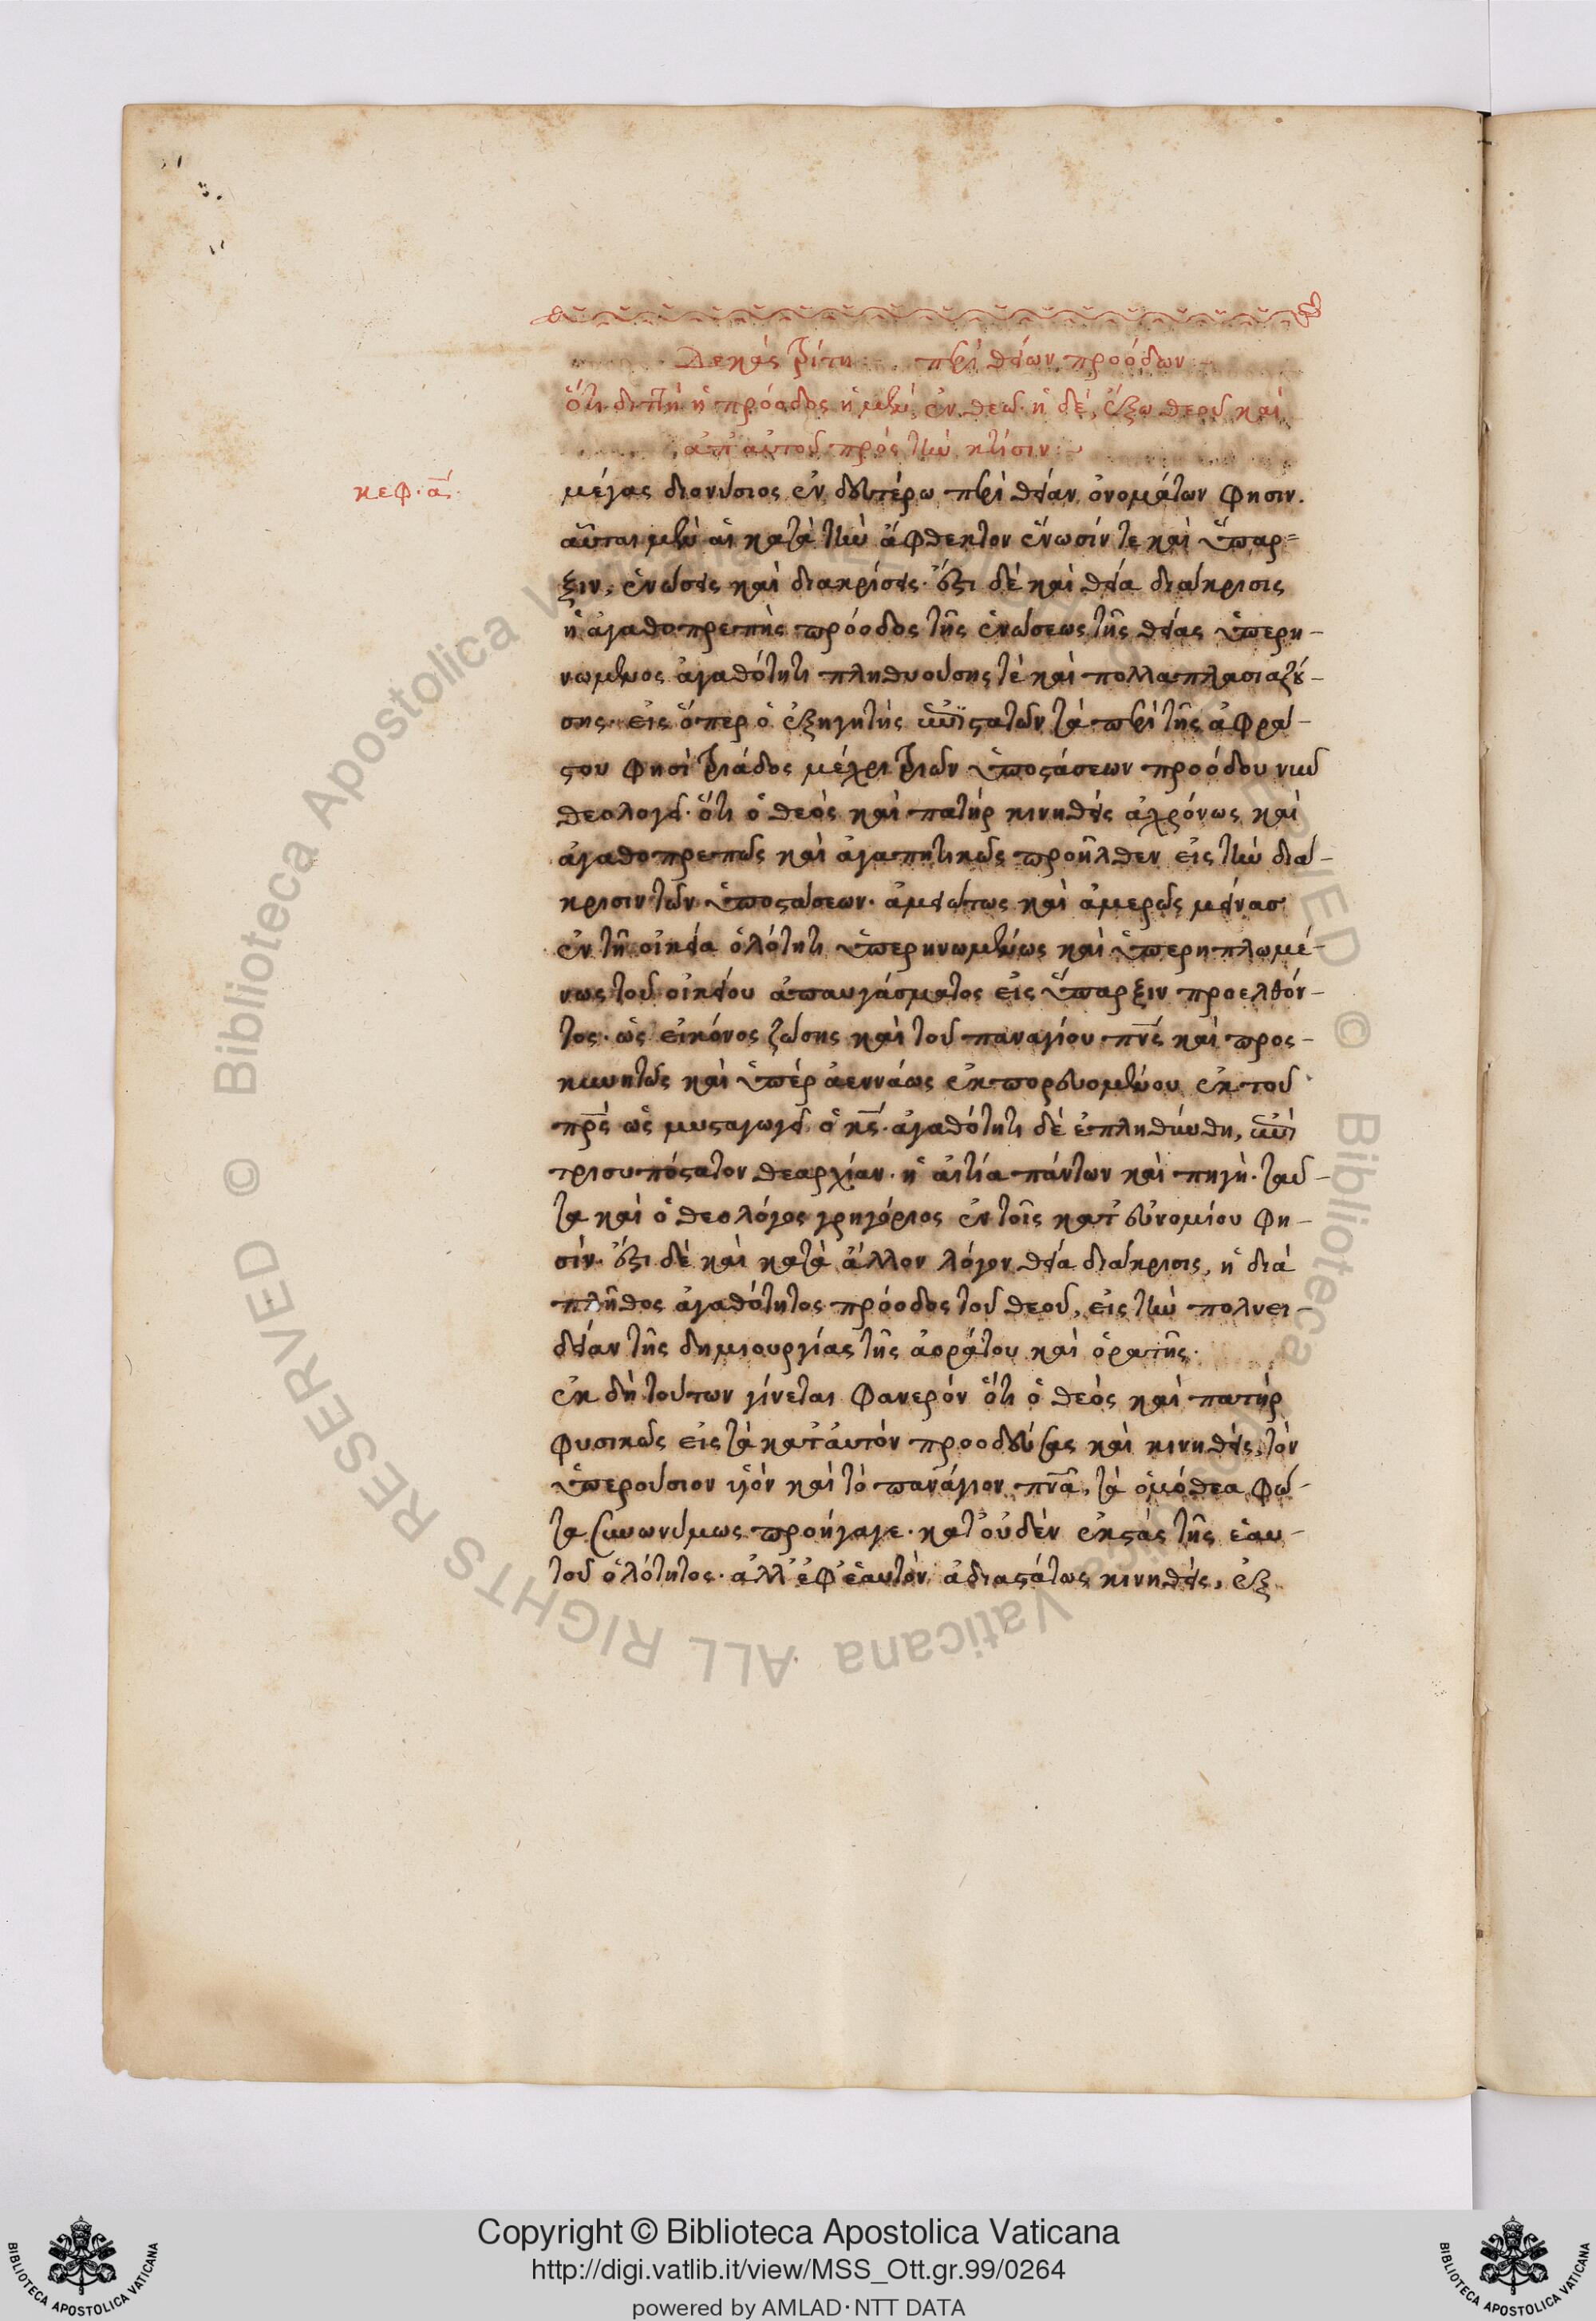 Δεκὰς τρίτη περὶ θείων προόδων
ὅτι διττὴ ἡ πρόοδος ἡ μὲν, ἐν θεῶ· ἡ δὲ, ἔξω θεοῦ καὶ
ἀπ' αὐτοῦ πρὸς τὴν κτίσιν:
κεφ. α΄.
μέγας διονύσιος ἐν δευτέρω περὶ θείων ὀνομάτων φησιν.
αὗται μὲν αἱ κατὰ τὴν ἄφθεγκτον ἕνωσίν τε καὶ ὕπαρ=
ξιν, ἑνώσεις καὶ διακρίσεις. ἔστι δὲ καὶ θεία διάκρισις
ἡ ἀγαθοπρεπὴς πρόοδος τῆς ἑνώσεως τῆς θείας ὑπερη-
νωμένως ἀγαθότητι πληθυούσης τὲ καὶ πολλαπλασιαζού-
σης. εἰς ὅπερ ὁ ἐξηγητὴς τὰ περὶ τῆς ἀφρά-
στου φησὶ τριάδος μέχρι τριῶν ὑποστάσεων προόδου νῦν
θεολογεῖ. ὅτι ὁ θεὸς καὶ πατὴρ κινηθεὶς ἀχρόνως καὶ
ἀγαθοπρεπῶς καὶ ἀγαπητικῶς προῆλθεν εἰς τὴν διά-
κρισιν τῶν ὑποστάσεων. ἀμειώτως καὶ ἀμερῶς μείνασ
ἐν τῆ οἰκεία ὁλότητι ὑπερηνωμένως καὶ ὑπερηπλωμέ-
νως τοῦ οἰκείου ἀπαυγάσματος εἰς ὕπαρξιν προελθόν-
τος. ὡς εἰκόνος ζώσης καὶ τοῦ παναγίου πν̅ς καὶ προς-
κυνητῶς καὶ ὑπὲρ ἀεννάως ἐκπορευομένου ἐκ τοῦ
πρ̅ς ὡς μυσταγωγεῖ ὁ κ̅ς. ἀγαθότητι δὲ ἐπληθύνθη,
τρισυπόστατον θεαρχίαν. ἡ αἰτία πάντων καὶ πηγὴ. ταῦ-
τα καὶ ὁ θεολόγος γρηγόριος ἐν τοῖς κατ' εὐνομίου φη-
σίν. ἔστι δὲ καὶ κατὰ ἄλλον λόγον θεία διάκρισις, ἡ διὰ
πλῆθος ἀγαθότητος πρόοδος τοῦ θεοῦ, εἰς τὴν πολυει-
δείαν τῆς δημιουργίας τῆς ἀοράτου καὶ ὁρατῆς.
ἐκ δὴ τούτων γίνεται φανερὸν ὅτι ὁ θεὸς καὶ πατὴρ
φυσικῶς εἰς τὰ κατ' αὐτὸν προοδεύσας καὶ κινηθεὶς, τὸν
ὑπερούσιον υἱὸν καὶ τὸ πανάγιον πν̅α, τὰ ὁμόθεα φῶ-
τα συνωνύμως προήγαγε. κατ' οὐδὲν ἐκστὰς τῆς ἑαυ-
τοῦ ὁλότητος. ἀλλ' ἐφ' ἑαυτὸν ἀδιαστάτως κινηθεὶς, ἐξ
Copyright © Biblioteca Apostolica Vaticana
http://digi.vatlib.it/view/MSS_Ott.gr.99/0264
powered by AMLAD·NTT DATA